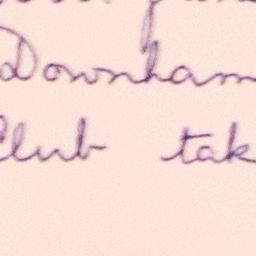 Downham
Club tak